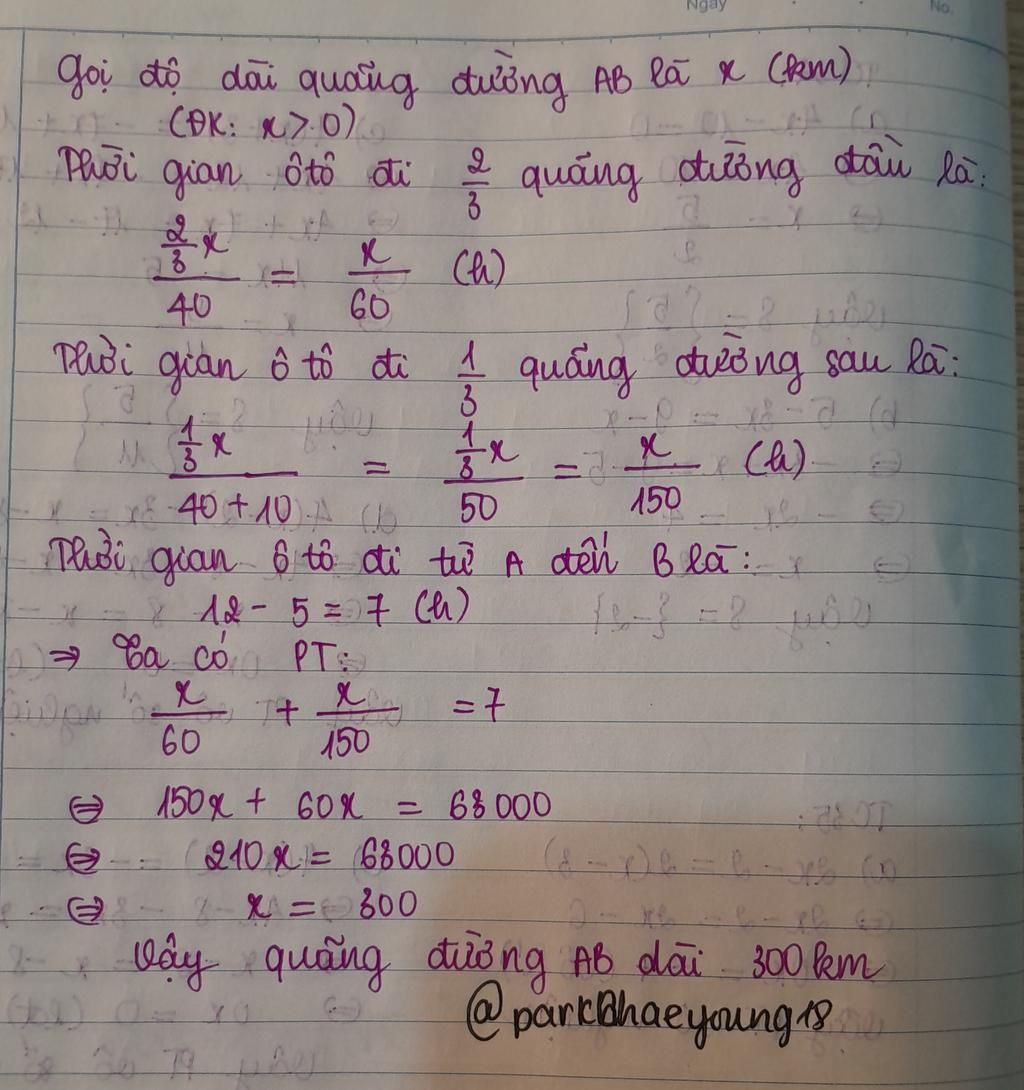 Ngày
No.
Gọi độ dài quãng đường AB là x (km)
(ĐK: x > 0)
Thời gian ôtô đi 2/3 quãng đường đầu là:
(2/3 x)/40 = x/60 (h)
Thời gian ô tô đi 1/3 quãng đường sau là:
(1/3 x)/(40 + 10) = (1/3 x)/50 = x/150 (h)
Thời gian ô tô đi từ A đến B là:
12 - 5 = 7 (h)
⇒ Ta có PT:
x/60 + x/150 = 7
⇔ 150x + 60x = 63000
⇔ 210x = 63000
⇔ x = 300
Vậy quãng đường AB dài 300km